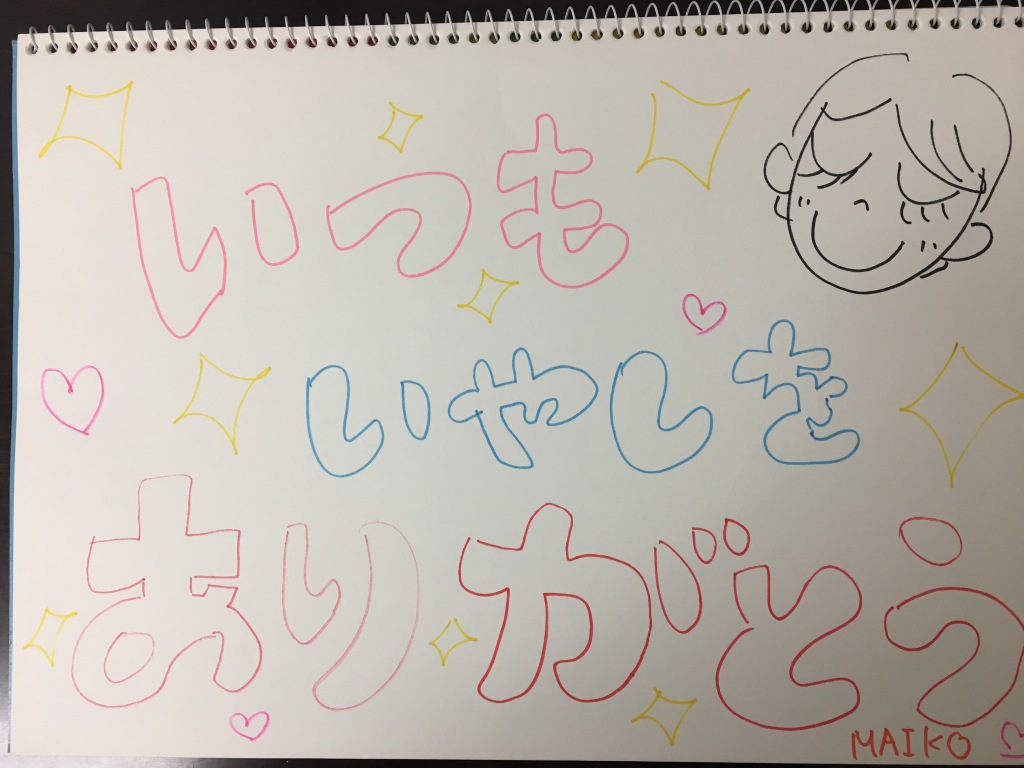 いつも
いやしを
ありがとう
MAIKO